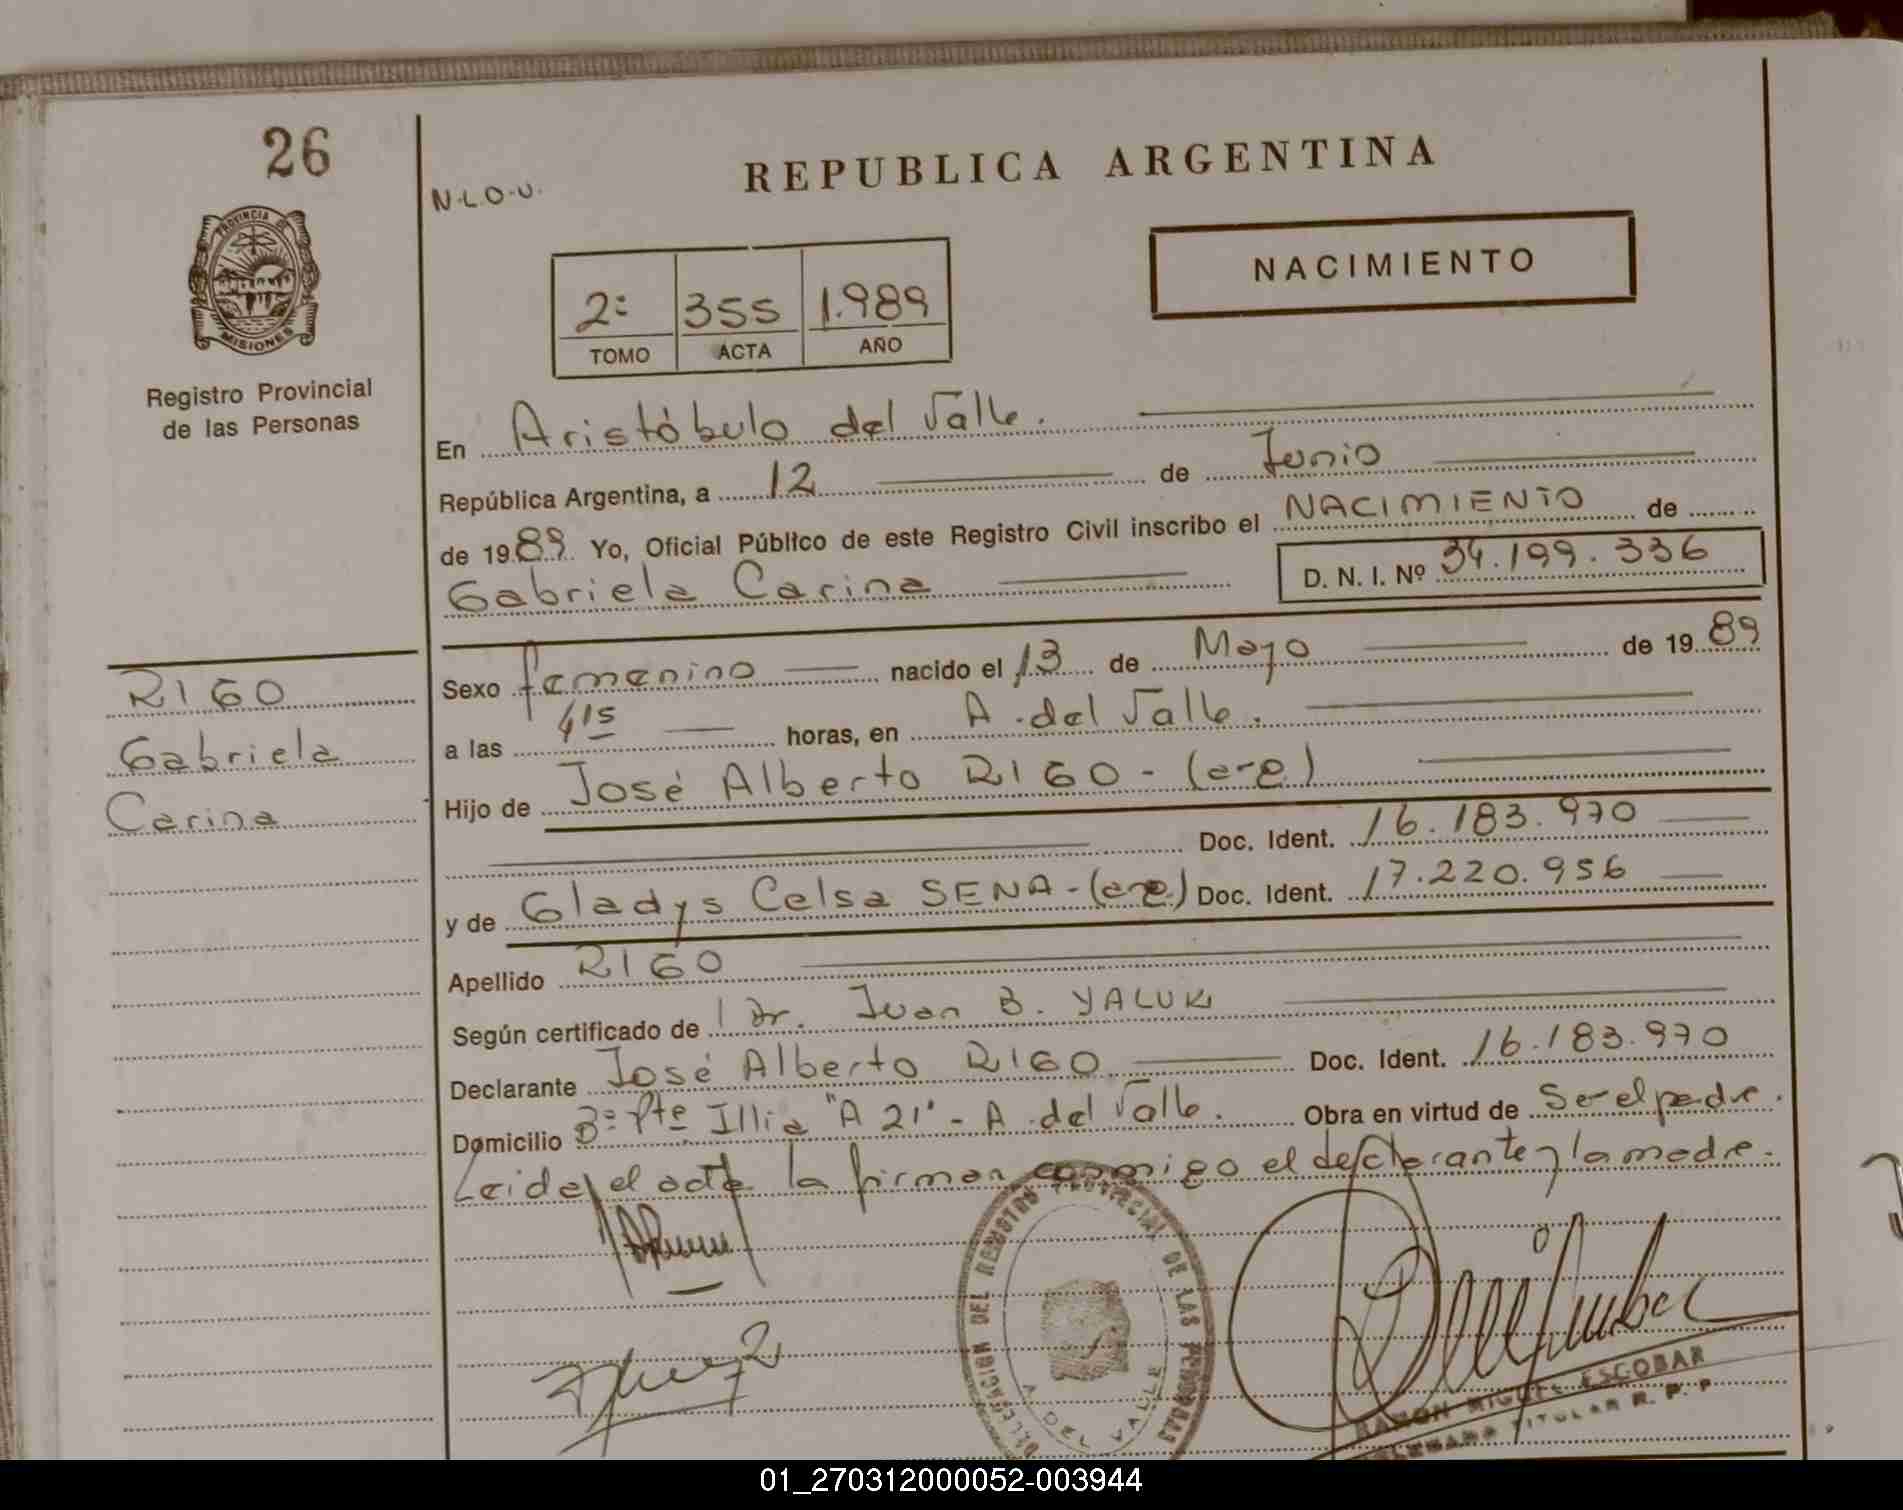 26
REPUBLICA ARGENTINA
N.L.O.U.
PROVINCIA DE
MISIONES
NACIMIENTO
2º 355 1.989
TOMO ACTA AÑO
Registro Provincial
de las Personas
En Aristóbulo del Valle.
República Argentina, a 12 de Junio
de 1989. Yo, Oficial Público de este Registro Civil inscribo el NACIMIENTO de
Gabriela Carina D. N. I. Nº 34.199.336
Sexo femenino nacido el 13 de Mayo de 1989
RIGO
a las 4 15 horas, en A. del Valle.
Gabriela
Hijo de José Alberto RIGO-
Carina
Doc. Ident. 16.183.970
y de Gladys Celsa SENA- Doc. Ident. 17.220.956
Apellido RIGO
Según certificado de Dr. Juan B. YALUK
Declarante José Alberto RIGO Doc. Ident. 16.183.970
Domicilio Bº Pte Illia "A 21" - A. del Valle. Obra en virtud de Ser el padre.
Leida el acta la firman conmigo el declarante y la madre.
DELEGACION DEL REGISTRO PROVINCIAL DE LAS PERSONAS
A. DEL VALLE
RAMON MIGUEL ESCOBAR
TITULAR R. P. P.
01_270312000052-003944